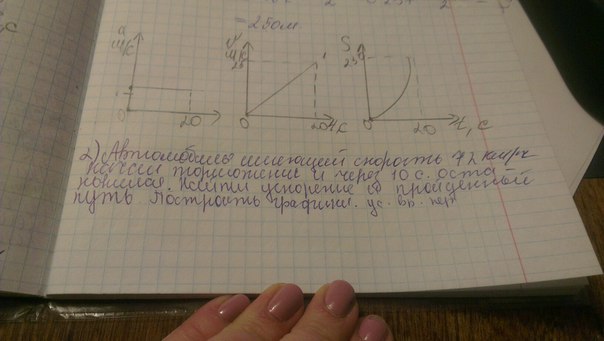 = 250м
a м/с 0 20
V м/с 25 0 20 t, c
S 250 0 20 t, c
2) Автомобиль имеющей скорость 72 км/ч
начал торможение и через 10 с. оста
новился. Найти ускорение и пройденный
путь. Построить графики. ус. вр. пер